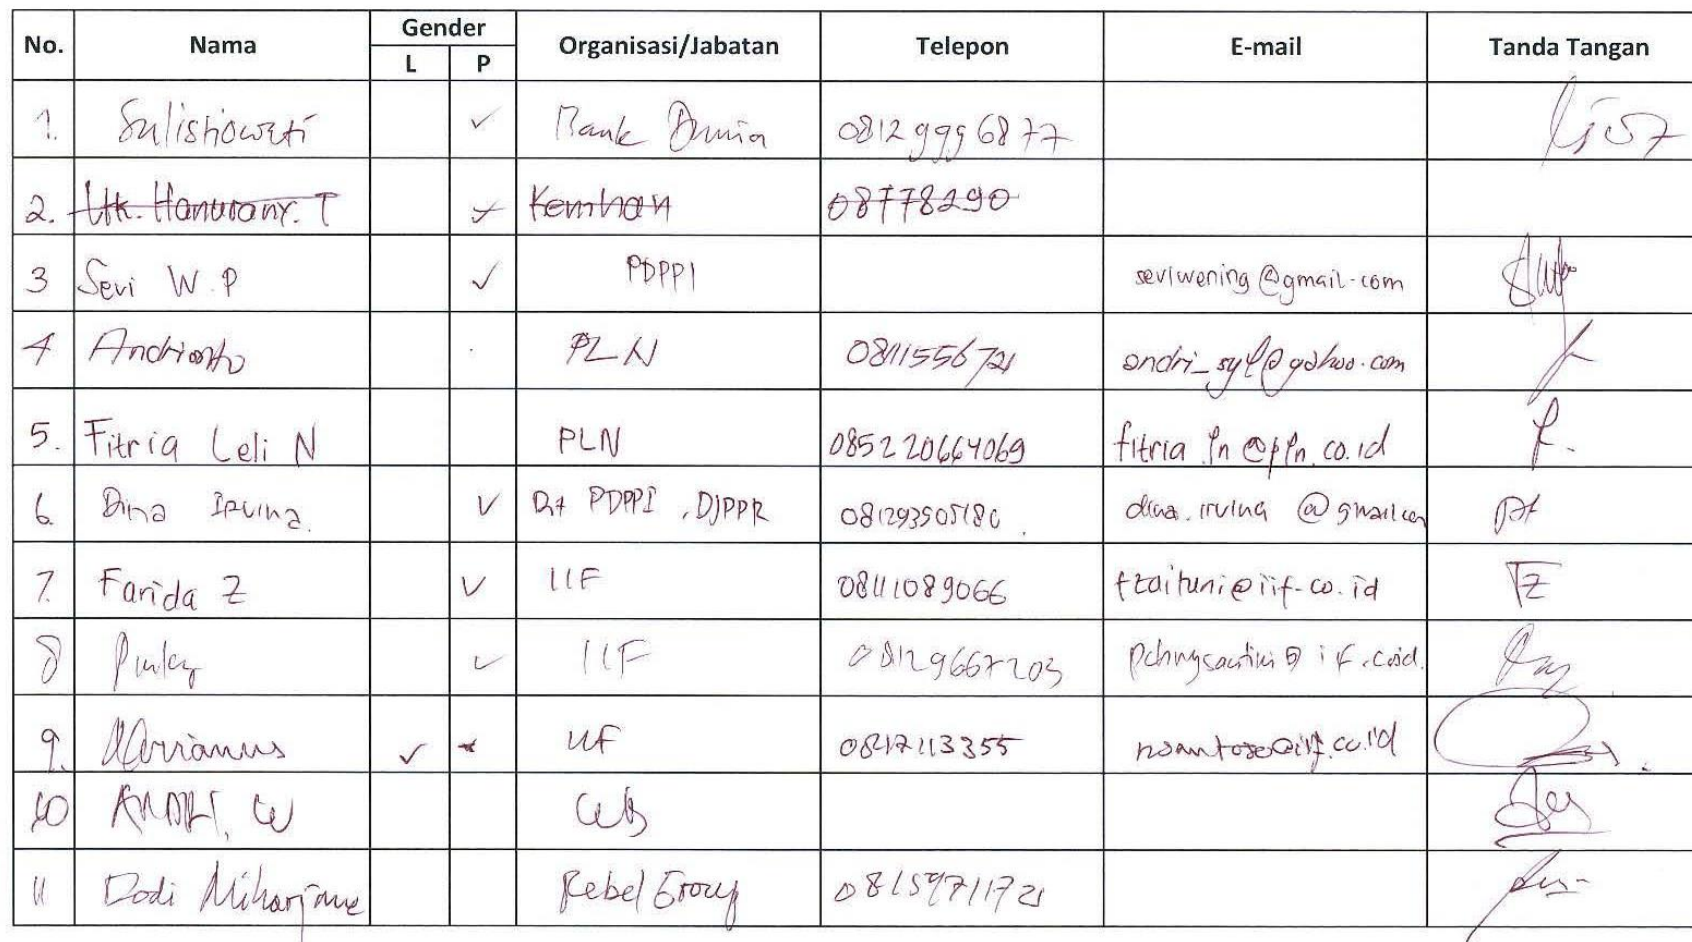 No. Nama Gender Organisasi/Jabatan Telepon E-mail Tanda Tangan
L P
1. Sulistiowati ✓ Bank Dunia 08129996877
2. Kemhan 08778290
3 Sevi W.P ✓ PDPPI seviwening@gmail.com
4 Andrianto PLN 0811556721 andri_syl@yahoo.com
5. Fitria Leli N PLN 085220664069 fitria.ln@pln.co.id
6. Dina Irvina. ✓ Dit PDPPI, DJPPR dina.irvina@gmail.com
7. Farida Z ✓ IIF 08111089066 fzaituni@iif.co.id
8 Pinky ✓ IIF 08129667203
9. ✓ IIF 0817113355
10 WB
11 Dodi Miharjana Rebel Group 0815971172